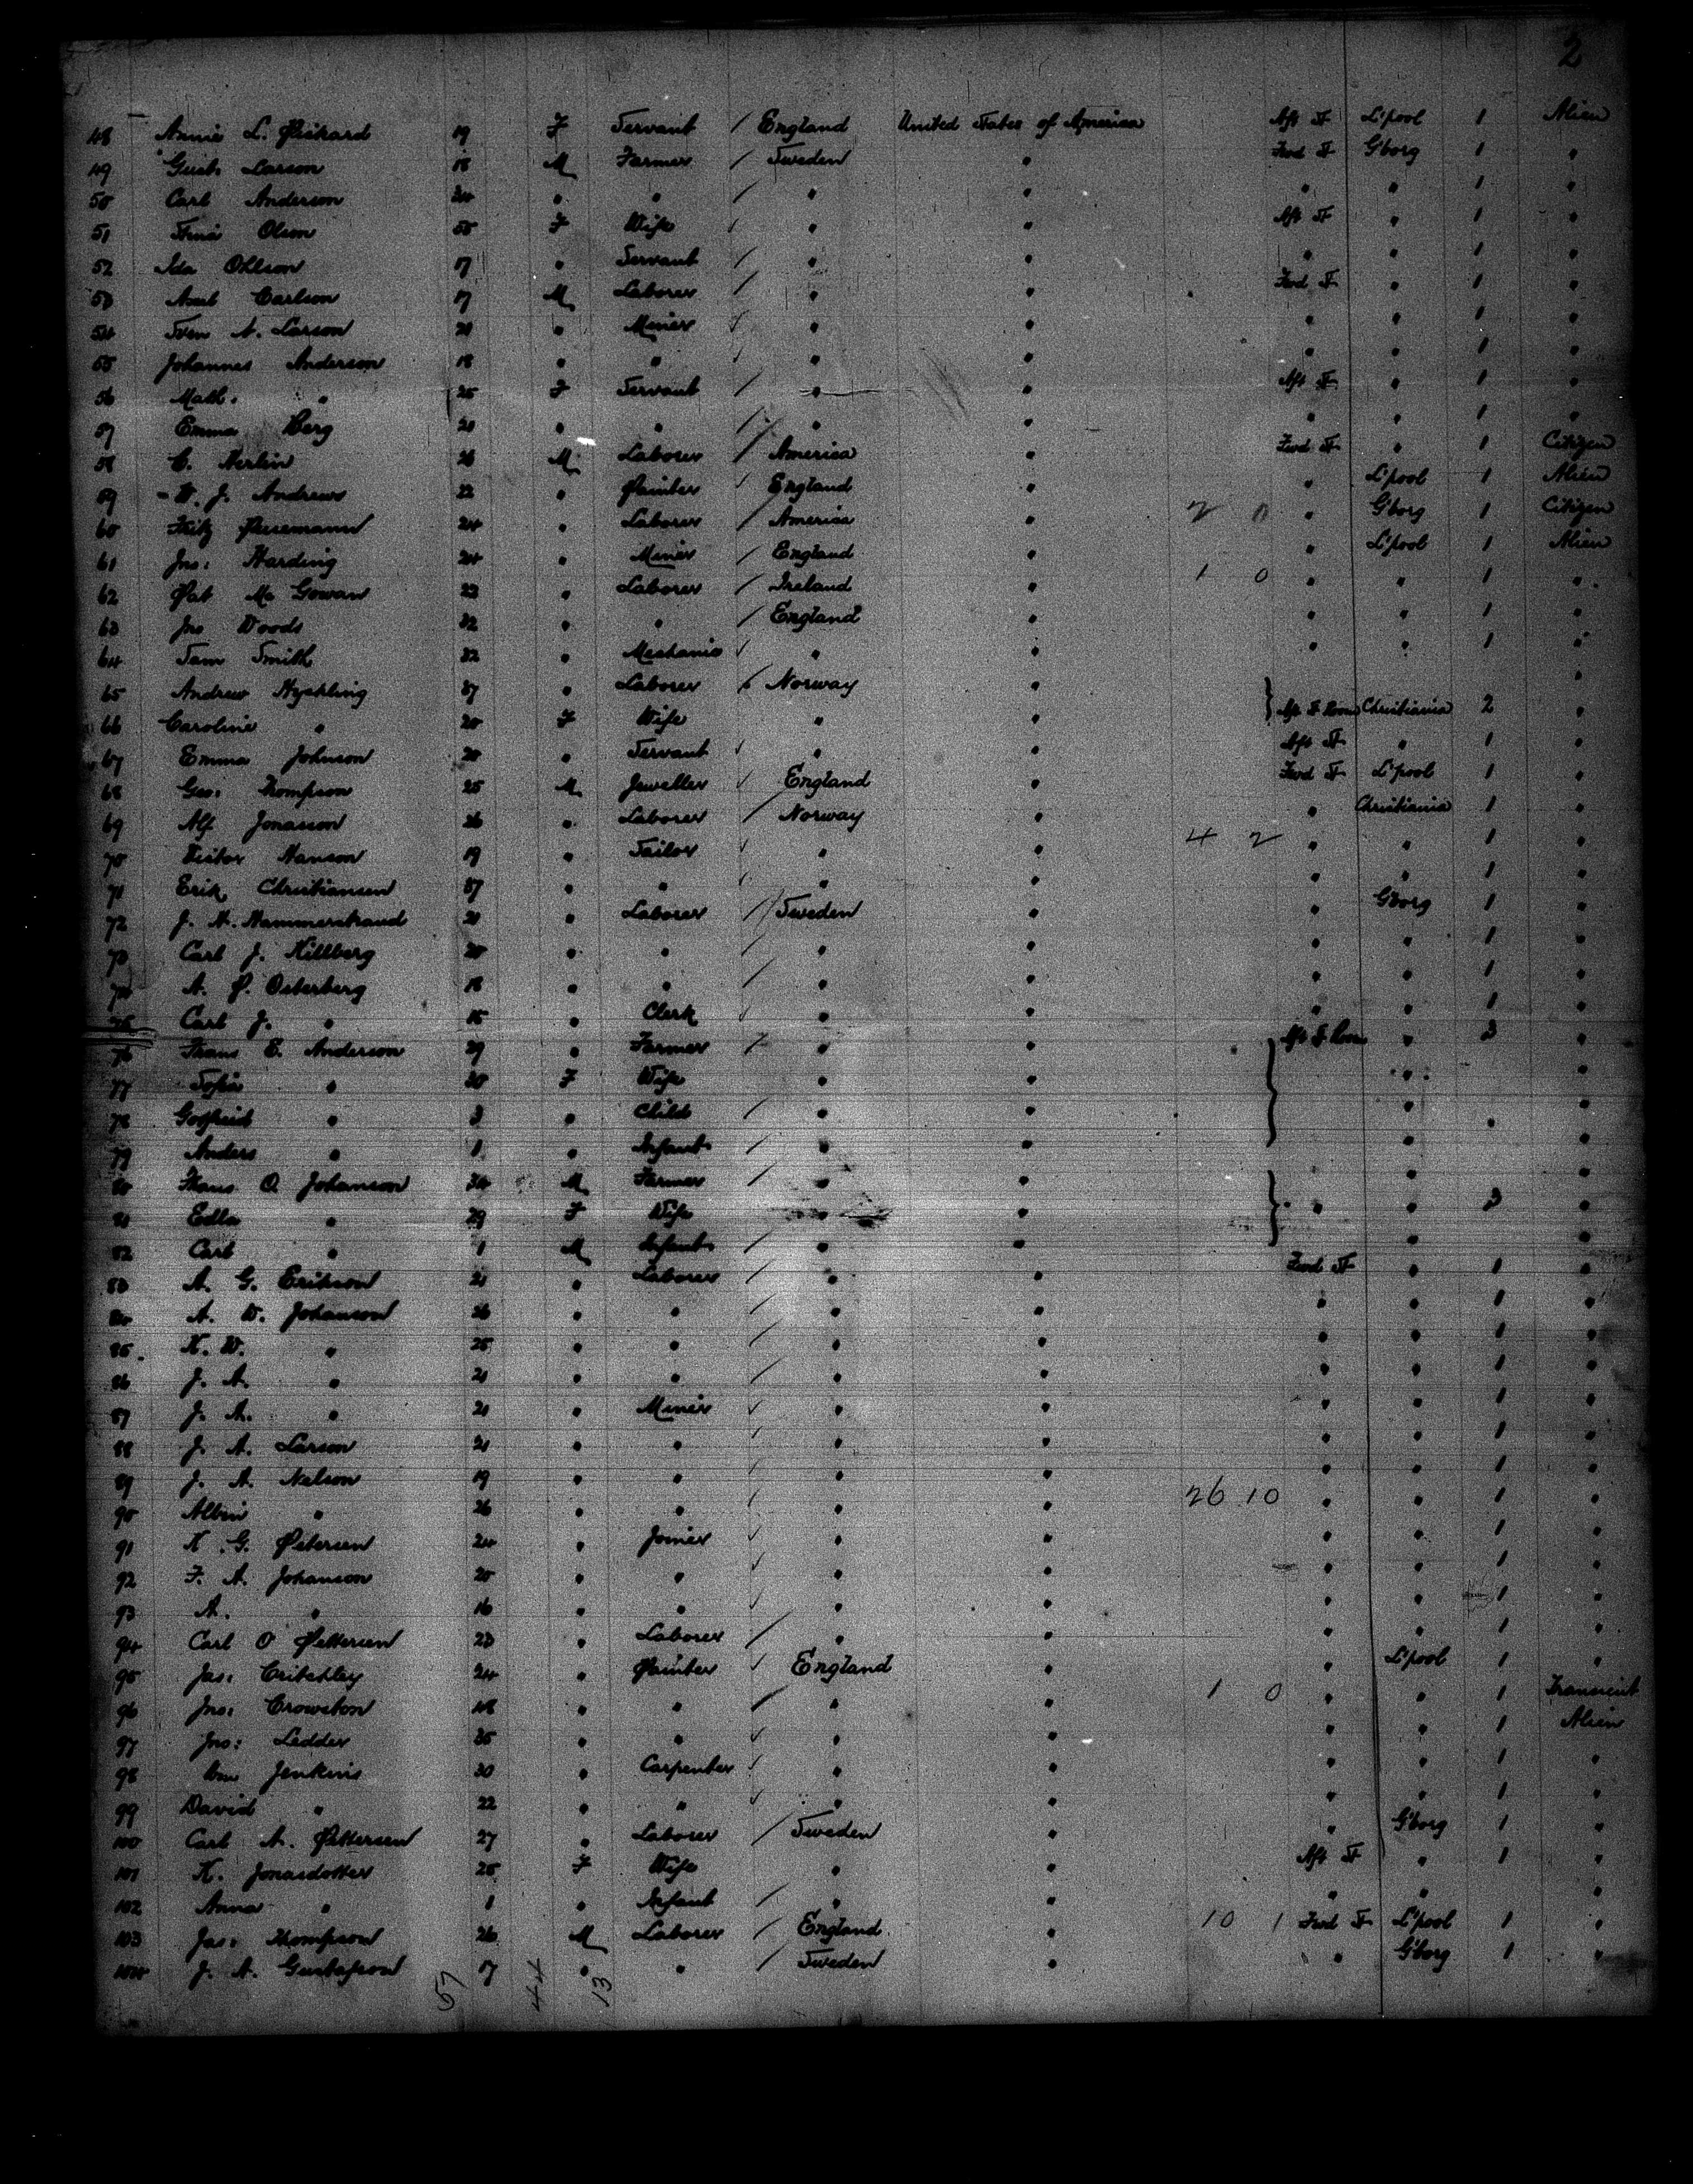 2
48 Annie L. Pickard 19 F Servant / England United States of America Aft St L'pool 1 Alien
49 Gust. Larson 18 M Farmer / Sweden " Fwd St G'borg 1 "
50 Carl Anderson 24 " " / " " " " 1 "
51 Stina Olson 55 F Wife / " " Aft St " 1 "
52 Ida Ohlson 17 " Servant / " " " " 1 "
53 Axel Carlson 17 M Laborer / " " Fwd St " 1 "
54 Sven A. Larson 21 " Miner ✓ " " " " 1 "
55 Johannes Anderson 18 " " / " " " " 1 "
56 Math. " 25 F Servant / " " Aft St " 1 "
57 Emma Berg 21 " " / " " " " 1 "
58 C. 26 M Laborer / America " Fwd St " 1 Citizen
59 W. J. Andrews 22 " Painter ✓ England " " L'pool 1 Alien
60 Fritz 24 " Laborer / America " 2 0 " G'borg 1 Citizen
61 Jno: Harding 24 " Miner / England " " L'pool 1 Alien
62 Pat Mc Gowan 23 " Laborer / Ireland " 1 0 " " 1 "
63 Jno Woods 32 " " / England " " " 1 "
64 Sam Smith 32 " Mechanic ✓ " " " " 1 "
65 Andrew 37 " Laborer / Norway " "
66 Caroline " 20 F Wife " " Aft St Room Christiania 2 "
67 Emma Johnson 20 " Servant ✓ " " Aft St " 1 "
68 Geo: Thompson 25 M Jeweller ✓ England " Fwd St L'pool 1 "
69 Alf Jonasson 26 " Laborer / Norway " " Christiania 1 "
70 Victor Hanson 19 " Tailor ✓ " " 4 2 " " 1 "
71 Erik Christiansen 37 " " ✓ " " " " 1 "
72 J. A. Hammerstrand 21 " Laborer / Sweden " " G'borg 1 "
73 Carl J. Killberg 20 " " / " " " " 1 "
74 A. P. Osterberg 18 " " / " " " " 1 "
75 Carl J. " 15 " Clerk ✓ " " " " 1 "
76 Frans E. Anderson 29 " Farmer / " " Aft St Room " 3 "
77 Sofia " 30 F Wife " " " "
78 Godfried " 3 " Child / " " " "
79 Anders " 1 " Infant / " " " "
80 Frans O. Johanson 34 M Farmer / " " " "
81 Edla " 29 F Wife " " " " 3 "
82 Carl " 1 M Infant / " " " "
83 A. G. Erikson 21 " Laborer / " " Fwd St " 1 "
84 A. W. Johanson 26 " " / " " " " 1 "
85 K. W. " 25 " " / " " " " 1 "
86 J. A. " 21 " " / " " " " 1 "
87 J. A. " 21 " Miner ✓ " " " " 1 "
88 J. A. Larson 21 " " ✓ " " " " 1 "
89 J. A. Nelson 19 " " ✓ " " " " 1 "
90 Albin " 26 " " ✓ " " 26 10 " " 1 "
91 K. G. Petersen 24 " Joiner ✓ " " " " 1 "
92 F. A. Johanson 20 " " ✓ " " " " 1 "
93 A. " 16 " " ✓ " " " " 1 "
94 Carl O Pettersen 23 " Laborer / " " " " 1 "
95 Jas: Critchley 24 " Painter ✓ England " " L'pool 1 "
96 Jno: Croweton 48 " " / " " 1 0 " " 1 Transient
97 Jno: Ledder 35 " " ✓ " " " " 1 Alien
98 Wm Jenkins 30 " Carpenter ✓ " " " " 1 "
99 David " 22 " " ✓ " " " " 1 "
100 Carl A. Pettersen 27 " Laborer / Sweden " " G'borg 1 "
101 K. Jonasdotter 25 F Wife " " Aft St " 1 "
102 Anna " 1 " Infant / " " " " "
103 Jas: Thompson 26 M Laborer / England " 10 1 Fwd St L'pool 1 "
104 J. A. Gustafson 17 " " / Sweden " " G'borg 1 "
57 44 13